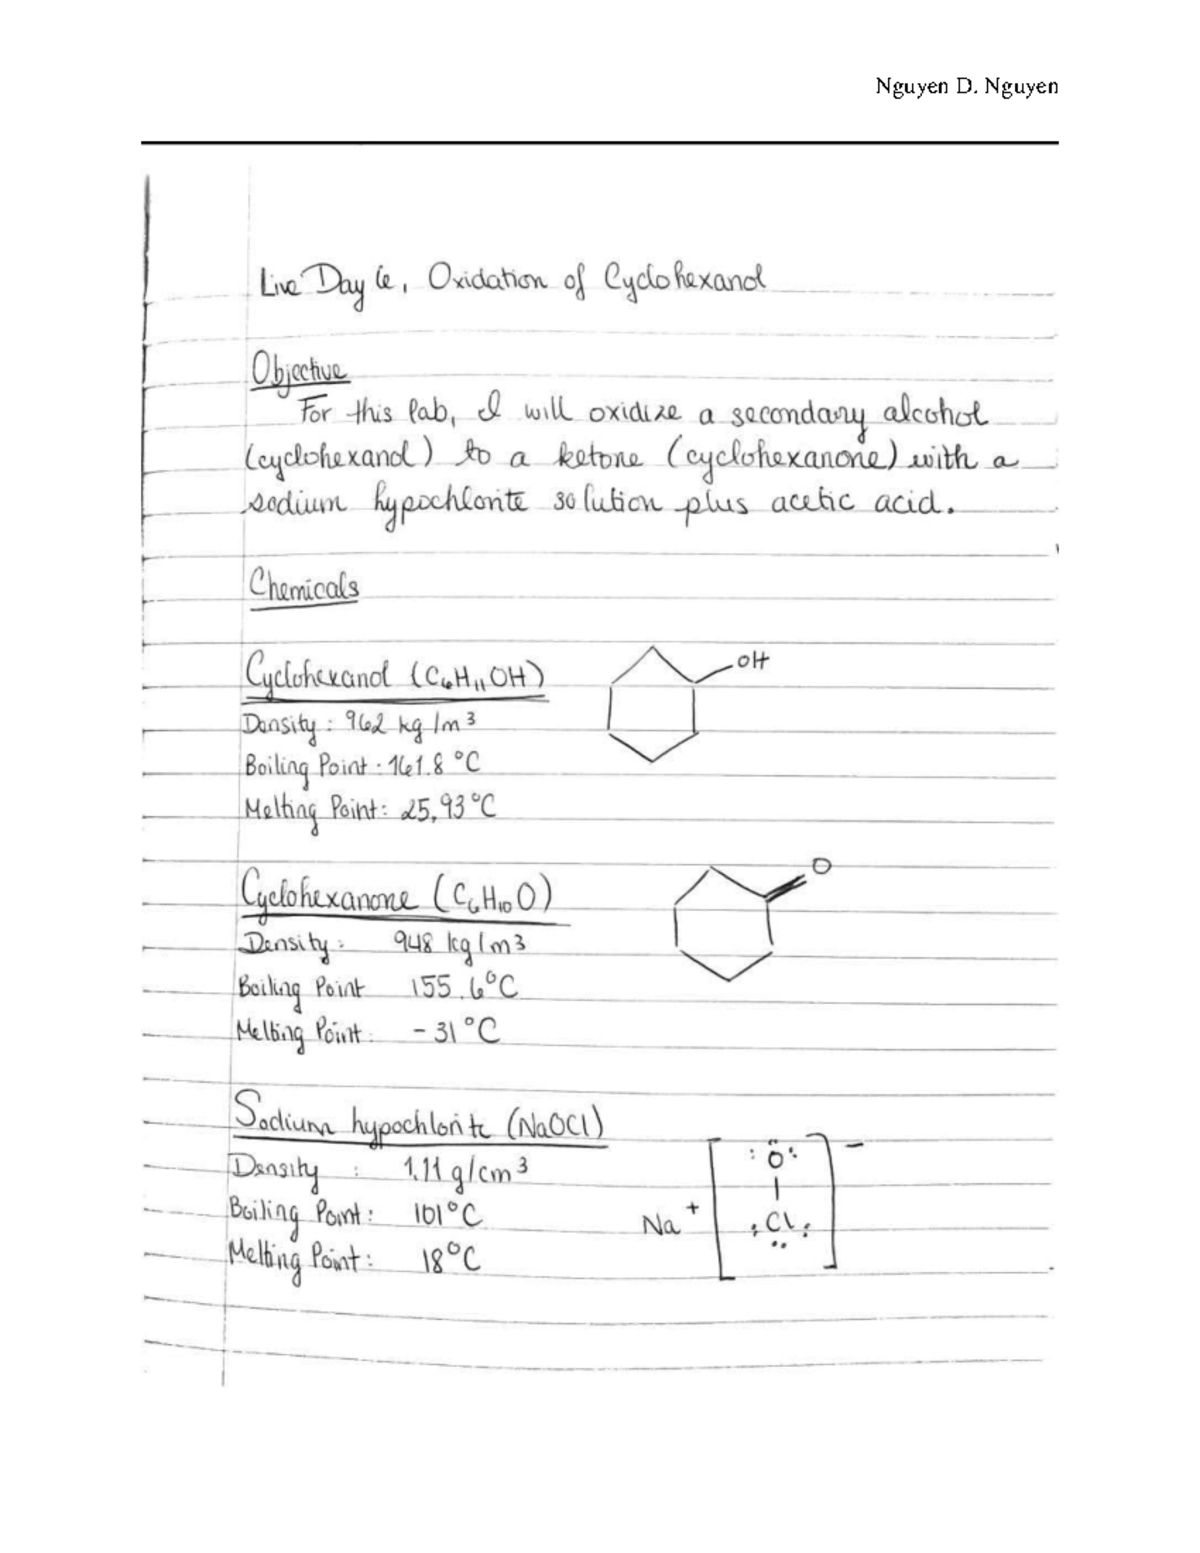 Nguyen D. Nguyen
Live Day 6, Oxidation of Cyclohexanol
Objective
For this lab, I will oxidize a secondary alcohol
(cyclohexanol) to a ketone (cyclohexanone) with a
sodium hypochlorite solution plus acetic acid.
Chemicals
Cyclohexanol (C₆H₁₁OH)
OH
Density: 962 kg/m³
Boiling Point: 161.8 °C
Melting Point: 25,93 °C
Cyclohexanone (C₆H₁₀O)
O
Density: 948 kg/m³
Boiling Point 155.6°C
Melting Point: -31°C
Sodium hypochlorite (NaOCl)
Density : 1.11 g/cm³
Boiling Point: 101°C
Melting Point: 18°C
Na⁺ [:Ö: | :Cl:]⁻